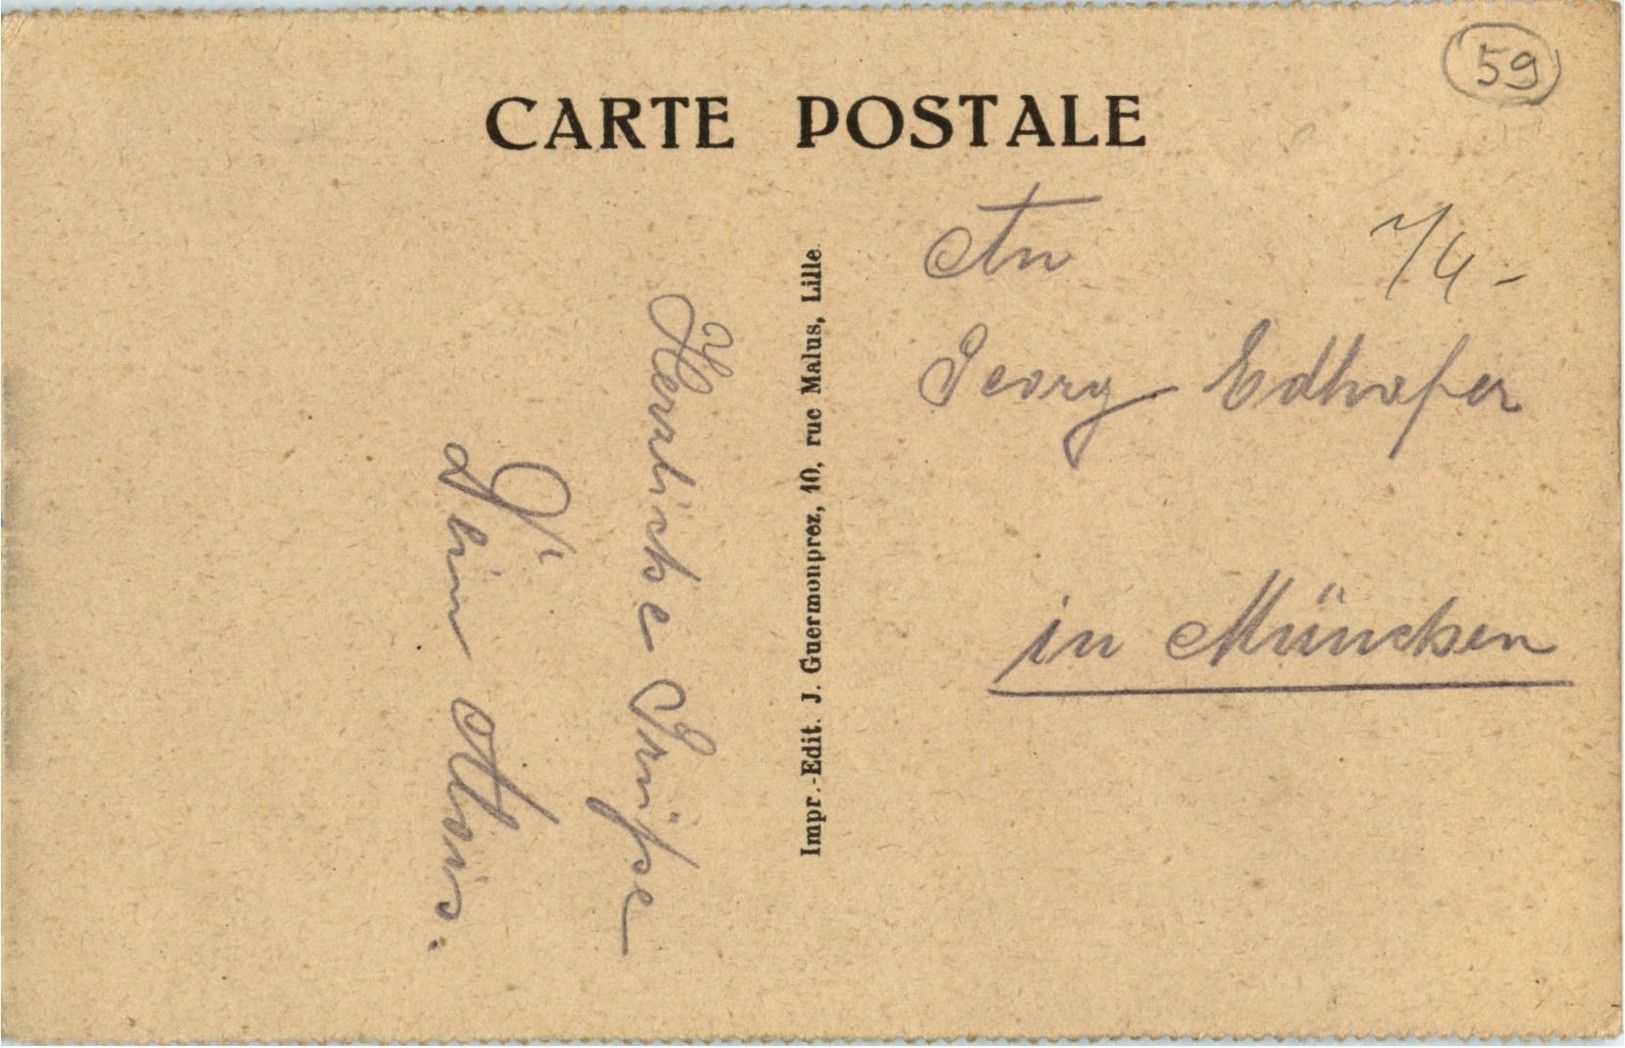 59
CARTE POSTALE
An
7/4-
Georg Edhofer
in München
Impr.-Edit. J. Guermonprez, 10, rue Malus, Lille.
Herzliche Grüße
Dein Alois.